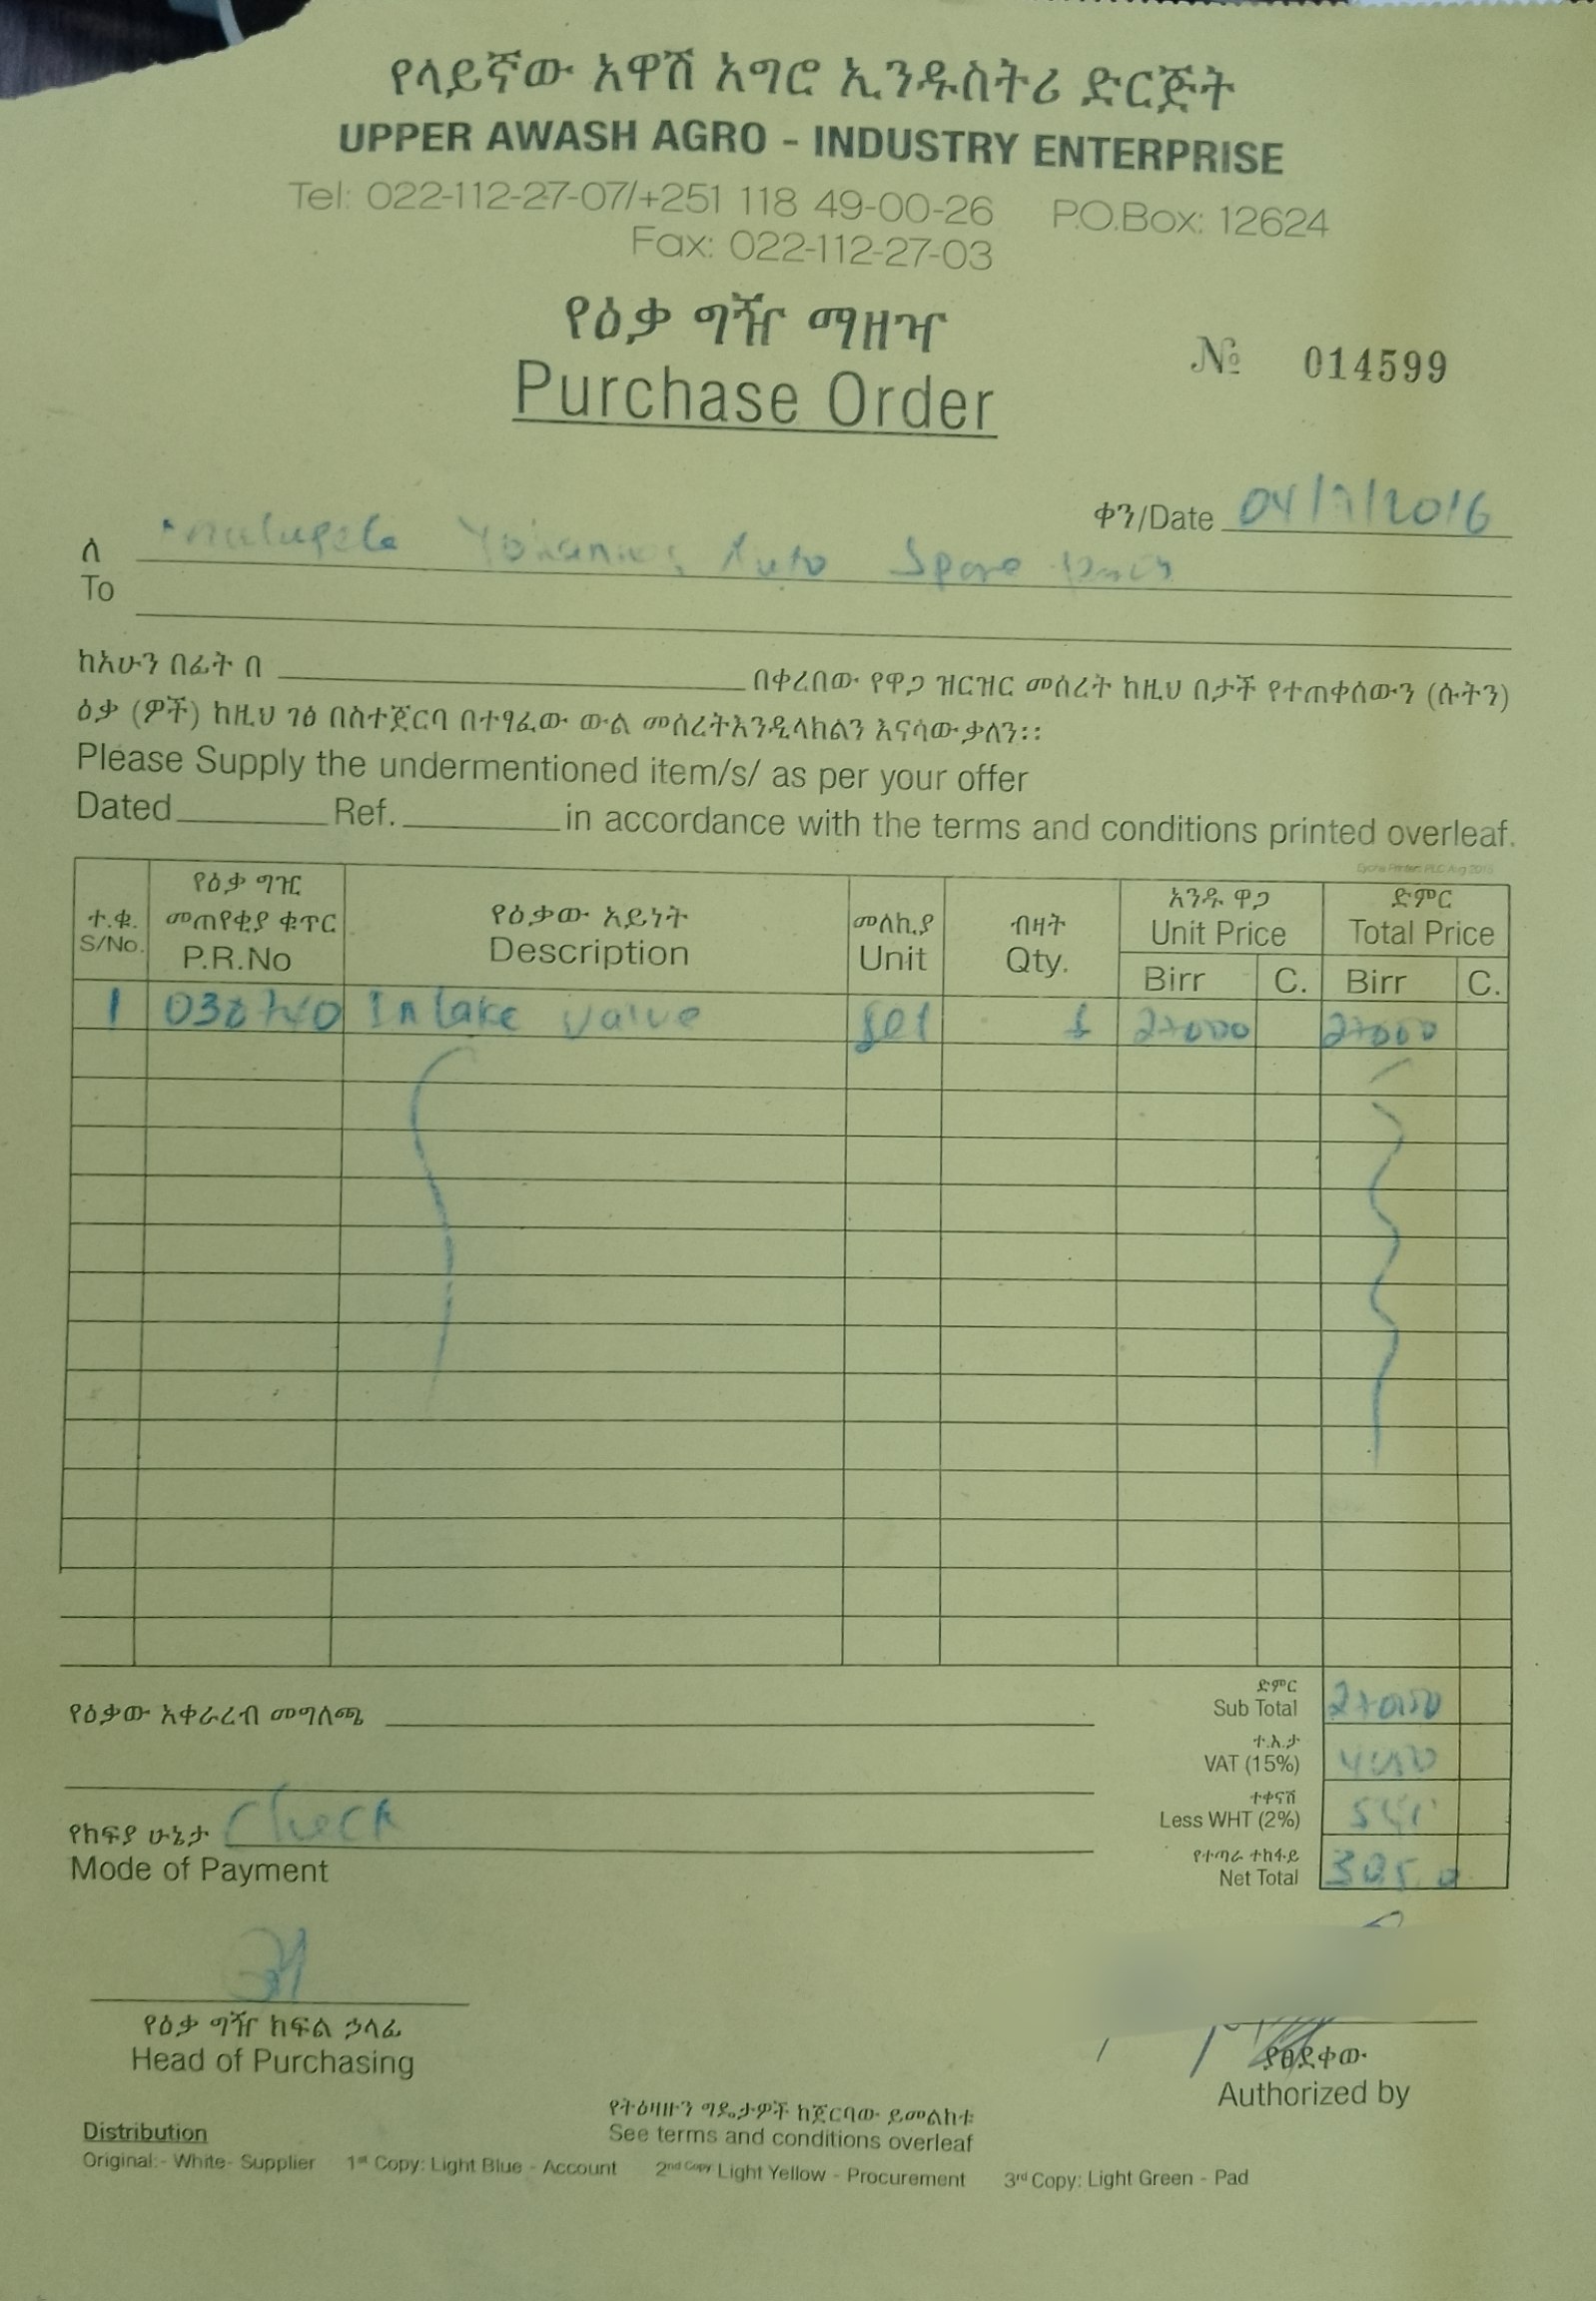 የላይኛው አዋሽ አግሮ ኢንዱስትሪ ድርጅት
UPPER AWASH AGRO - INDUSTRY ENTERPRISE
Tel: 022-112-27-07/+251 118 49-00-26 P.O.Box: 12624
Fax: 022-112-27-03
የዕቃ ግዥ ማዘዣ
Purchase Order
№ 014599
ቀን/Date 04/ /2016
ለ
To
Yohannes Auto Spare
ከአሁን በፊት በ በቀረበው የዋጋ ዝርዝር መሰረት ከዚህ በታች የተጠቀሰውን (ሱትን)
ዕቃ (ዎች) ከዚህ ገፅ በስተጀርባ በተፃፈው ውል መሰረትእንዲላክልን እናሳውቃለን፡፡
Please Supply the undermentioned item/s/ as per your offer
Dated Ref. in accordance with the terms and conditions printed overleaf.
ተ.ቁ. S/No. የዕቃ ግዢ መጠየቂያ ቁጥር P.R.No የዕቃው አይነት Description መለኪያ Unit ብዛት Qty. አንዱ ዋጋ Unit Price Birr C. ድምር Total Price Birr C.
1 Intake valve set 1 27000 27000
ድምር
Sub Total 27000
የዕቃው አቀራረብ መግለጫ
ተ.እ.ታ
VAT (15%)
ተቀናሽ
Less WHT (2%)
የክፍያ ሁኔታ Check
Mode of Payment
የተጣራ ተከፋይ
Net Total
የዕቃ ግዥ ክፍል ኃላፊ
Head of Purchasing
ያፀደቀው
Authorized by
የትዕዛዙን ግዴታዎች ከጀርባው ይመልከቱ
See terms and conditions overleaf
Distribution
Original:- White- Supplier 1st Copy: Light Blue - Account 2nd Copy Light Yellow - Procurement 3rd Copy: Light Green - Pad